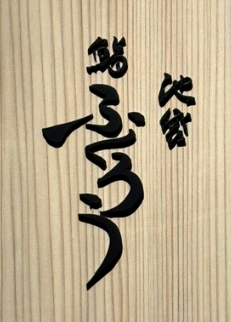 池袋
鮨 ふくろう